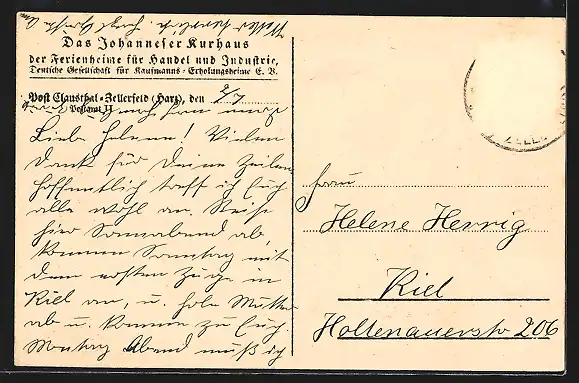 Das Johanneser Kurhaus
der Ferienheime für Handel und Industrie,
Deutsche Gesellschaft für Kaufmanns-Erholungsheime E. V.
Post Clausthal-Zellerfeld (Harz), den
Postamt II
Liebe Helene! Vielen
Dank für Deine Zeilen
hoffentlich treff ich Euch
alle wohl an. Reise
hier Sonnabend ab,
komme Sonntag mit
dem ersten Zuge in
Kiel an, u. hole Mutter
ab u. komme zu Euch,
Montag Abend muß ich
Frau
Helene Herrig
Kiel
Holtenauerstr 206
ZELLE